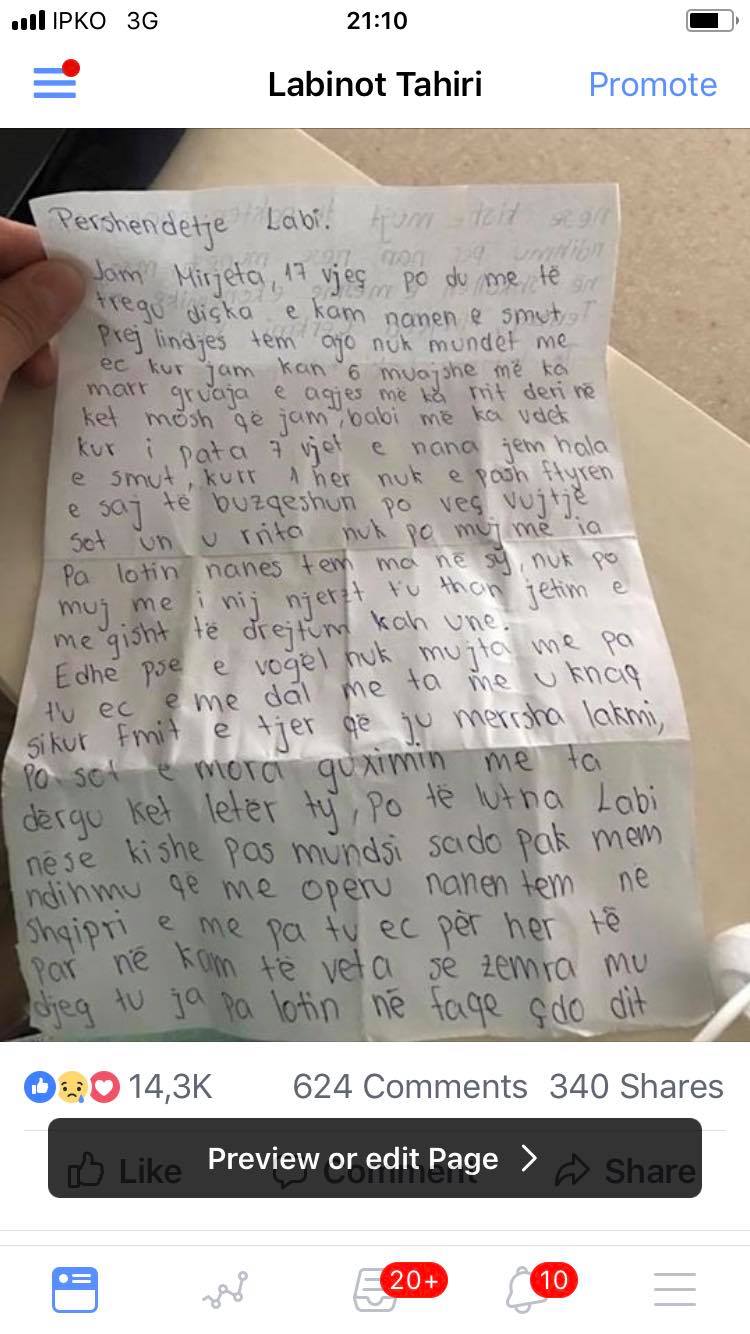 IPKO 3G 21:10
Labinot Tahiri Promote
Pershendetje Labi.
Jam Mirjeta, 17 vjeç po du me të
tregu diçka e kam nanen e smut
Prej lindjes tem ajo nuk mundet me
ec kur jam kan 6 muajshe më ka
marr gruaja e agjes më ka rrit deri në
ket mosh që jam, babi më ka vdek
kur i pata 7 vjet e nana jem hala
e smut, kurr 1 her nuk e pash ftyren
e saj të buzqeshun po veç vujtje
Sot un u rrita nuk po muj me ia
Pa lotin nanes tem ma në sy, nuk po
muj me i nij njerzt tu than jetim e
me gisht të drejtum kah une.
Edhe pse e vogel nuk mujta me pa
tu ec e me dal me ta me u knaq
sikur fmit e tjer që ju merrsha lakmi,
Po sot e mora guximin me ta
dërgu ket letër ty, Po të lutna Labi
nëse kishe pas mundsi sado pak mem
ndihmu qe me operu nanen tem në
Shqipri e me pa tu ec për her të
Par në kam të veta se zemra mu
djeg tu ja pa lotin në faqe çdo dit
14,3K 624 Comments 340 Shares
Like Comment Share
Preview or edit Page
20+ 10